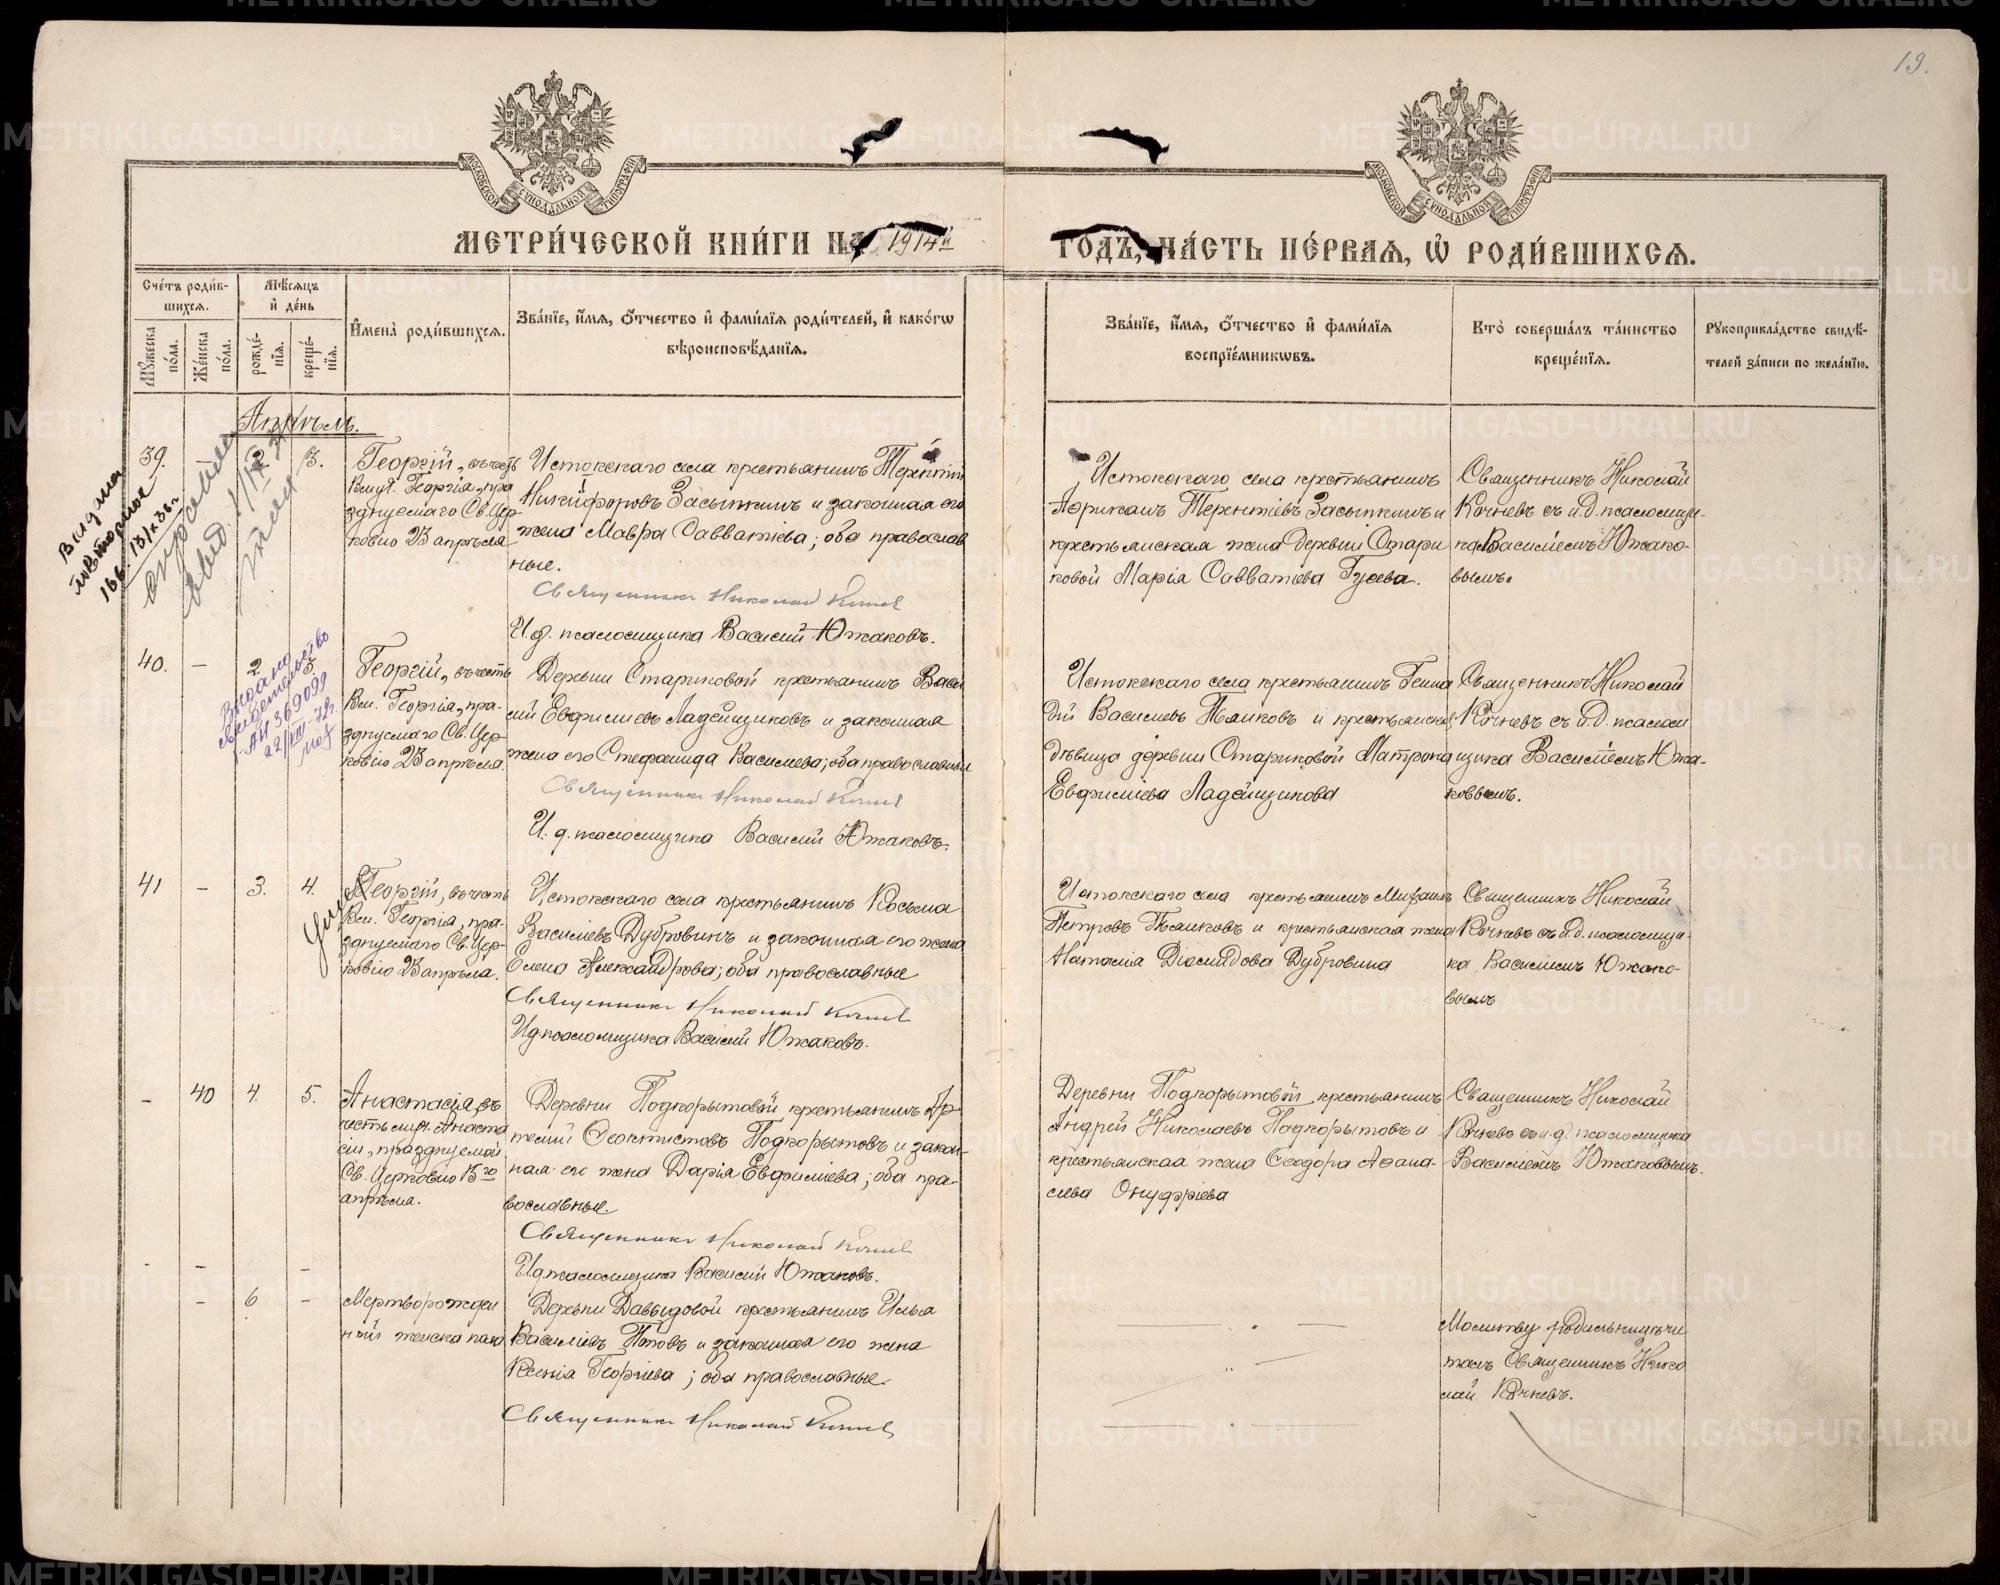 19.
МЕТРИ́ЧЕСКОЙ КНИ́ГИ НА 1914й ГОДЪ, ЧА́СТЬ ПЕ́РВАЯ, Ѡ РОДИ́ВШИХСЯ.
Сче́тъ роди́в-
шихся.
Мѣ́сяцъ
и де́нь
Мꙋ́жеска по́ла.
Же́нска по́ла.
рожде́-
нїя.
креще́-
нїя.
Имена̀ роди́вшихся.
Зва́нїе, и́мя, о́тчество и фами́лїя роди́телей, и како́гѡ
вѣроисповѣ́данїя.
Зва́нїе, и́мя, о́тчество и фами́лїя
воспрїе́мникѡвъ.
Кто̀ соверша́лъ та́инство
креще́нїя.
Рꙋкоприкла́дство свидѣ́-
телей за́писи по жела́нїю.
Апрѣль.
39.
2
3.
Георгій, въ честь
Вмуч. Георгія, пра
зднуемаго Св. Цер-
ковію 23 апрѣля
Истокскаго села крестьянинъ Терентій
Никифоровъ Засыпкинъ и законная его
жена Мавра Савватіева; оба православ
ные.
Священникъ Николай Кочнев
И. д. псаломщика Василій Южаковъ.
Истокскаго села крестьянинъ
Африканъ Терентіевъ Засыпкинъ и
крестьянская жена деревни Стари
ковой Марія Савватіева Гусева.
Священникъ Николай
Кочневъ съ и. д. псаломщи-
ка Василіемъ Южако-
вымъ.
40.
—
2
3.
Георгій, въ честь
Вм. Георгія, пра-
зднуемаго Св. Цер-
ковію 23 апрѣля.
Деревни Стариковой крестьянинъ Васи
лій Евфиміевъ Ладейщиковъ и законная
жена его Стефанида Васильева; оба православные
Священникъ Николай Кочнев
И. д. псаломщика Василій Южаковъ.
Истокскаго села крестьянинъ Генна
дій Васильевъ Пьянковъ и крестьянская
дѣвица деревни Стариковой Матрона
Евфиміева Ладейщикова
Священникъ Николай
Кочневъ съ и. д. псалом
щика Василіемъ Южа-
ковымъ.
Выдано
свидетельство
АИ 369099
22/VIII-72г.
41
—
3.
4.
Георгій, въ честь
Вм. Георгія, пра-
зднуемаго Св. Цер-
ковію 23 апрѣля.
Истокскаго села крестьянинъ Косьма
Василіевъ Дубровинъ и законная его жена
Елена Александрова; оба православные
Священникъ Николай Кочнев
И д псаломщика Василій Южаковъ.
Истокскаго села крестьянинъ Михаилъ
Петровъ Пьянковъ и крестьянская жена
Наталія Діомидова Дубровина
Священникъ Николай
Кочневъ съ и. д. псаломщи-
ка Василіемъ Южако-
вымъ
—
40
4.
5.
Анастасія, въ
честь муч. Анаста
сіи, празднуемой
Св. Церковію 15го
апрѣля.
Деревни Подкорытовой крестьянинъ Ар-
темій Феоктистовъ Подкорытовъ и закон-
ная его жена Дарія Евфиміева; оба пра-
вославные.
Священникъ Николай Кочнев
И д псаломщика Василій Южаковъ.
Деревни Подкорытовой крестьянинъ
Андрей Николаевъ Подкорытовъ и
крестьянская жена Феодора Афана-
сіева Онуфріева
Священникъ Николай
Кочневъ съ и. д. псаломщика
Василіемъ Южаковымъ.
—
6
—
Мертворожден
ный женска пола
Деревни Давыдовой крестьянинъ Илья
Василіевъ Поповъ и законная его жена
Ксенія Георгіева; оба православные.
Священникъ Николай Кочнев
Молитву родильницѣ чи
талъ Священникъ Нико
лай Кочневъ.